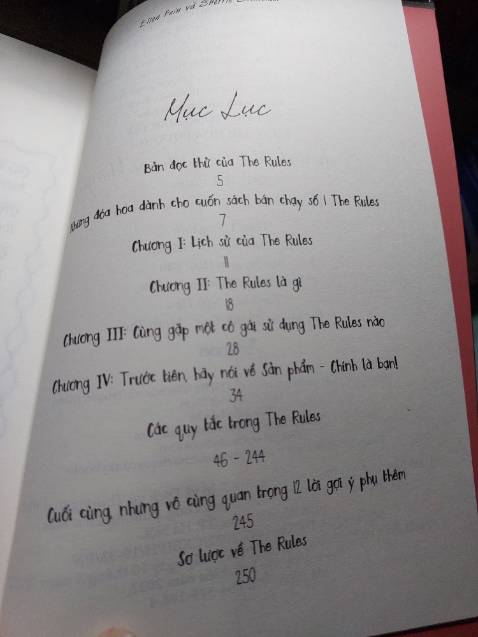 Ellen Fein và Sherrie
Mục Lục
Bản đọc thử của The Rules
5
Những đóa hoa dành cho cuốn sách bán chạy số 1 The Rules
7
Chương I: Lịch sử của The Rules
11
Chương II: The Rules là gì
18
Chương III: Cùng gặp một cô gái sử dụng The Rules nào
28
Chương IV: Trước tiên, hãy nói về Sản phẩm - Chính là bạn!
34
Các quy tắc trong The Rules
46 - 244
Cuối cùng, nhưng vô cùng quan trọng 12 lời gợi ý phụ thêm
245
Sơ lược về The Rules
250